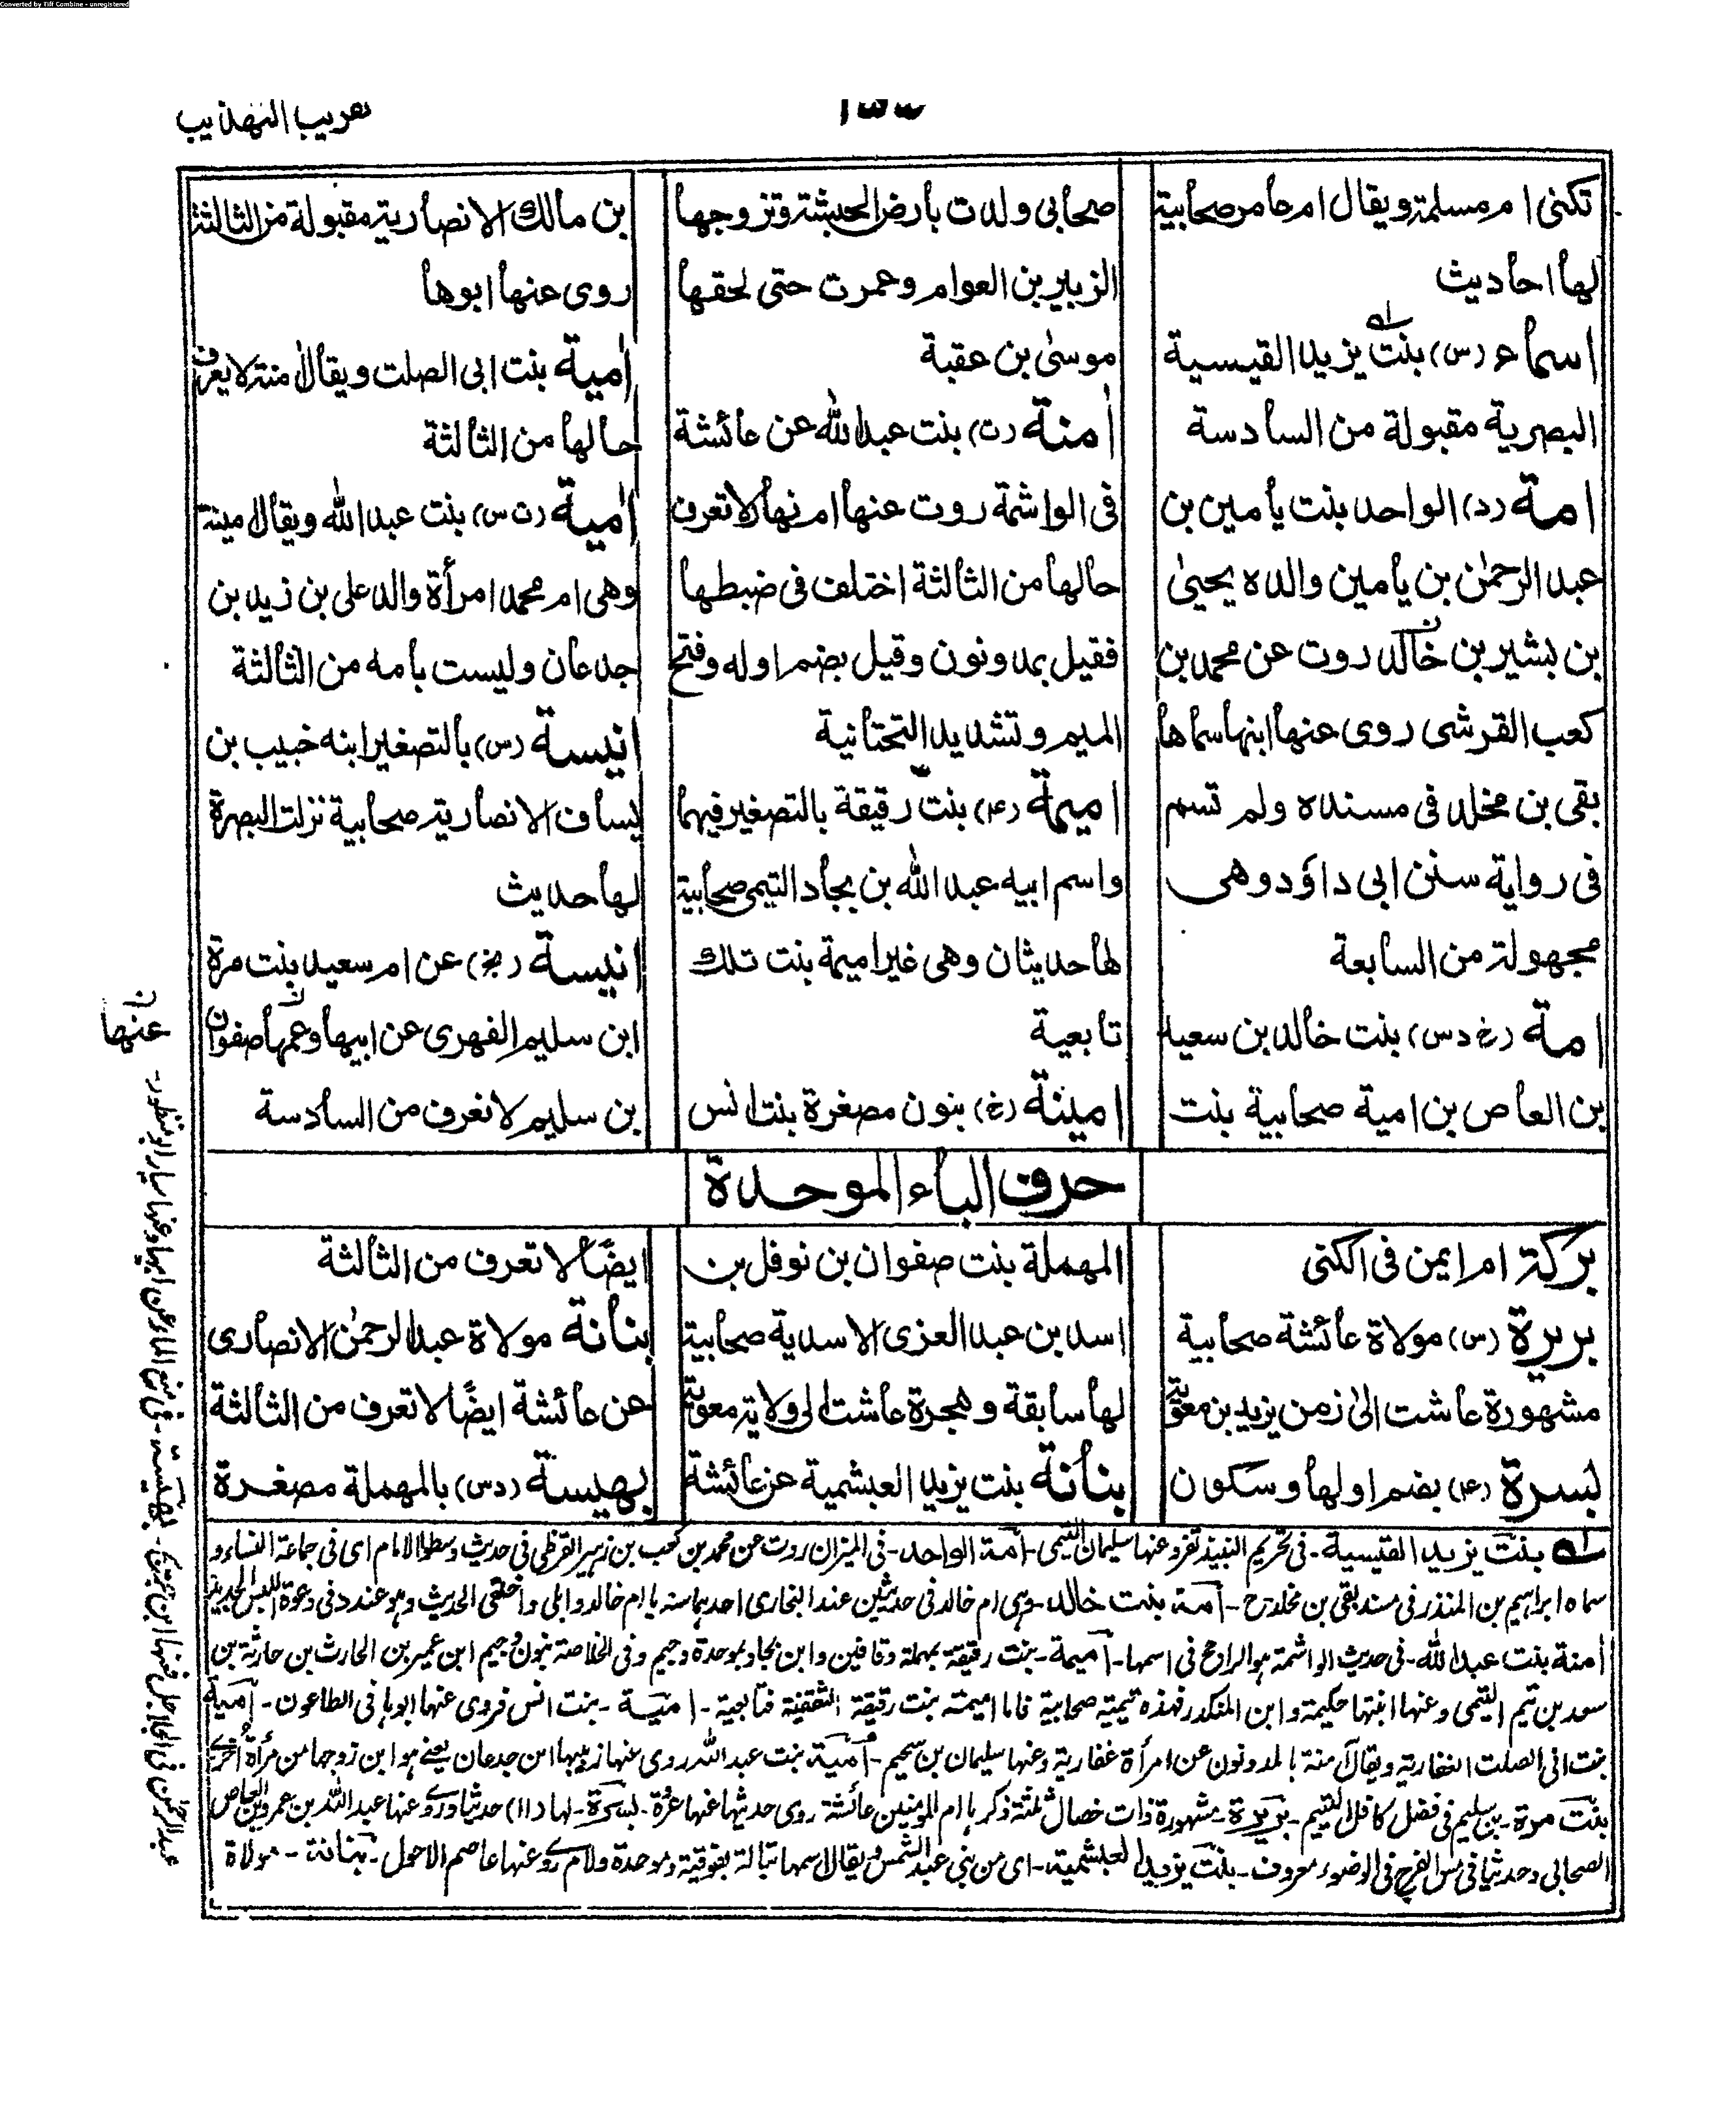 Converted by Tiff Combine - unregistered
تقريب التهذيب
تكنى ام مسلمة ويقال ام عامر صحابية
لها احاديث
اسماء (س) بنت يزيد القيسية
البصرية مقبولة من السادسة
امة (د) الواحد بنت يامين بن
عبد الرحمٰن بن يامين والده يحيىٰ
بن بشير بن خالد روت عن محمد بن
كعب القرشى روى عنها ابنها سماها
بقى بن مخلد فى مسنده ولم تسم
فى رواية سنن ابى داؤد وهى
مجهولة من السابعة
امة (خ د س) بنت خالد بن سعيد
بن العاص بن امية صحابية بنت
صحابى ولدت بارض الحبشة وتزوجها
الزبير بن العوام وعمرت حتى لحقها
موسىٰ بن عقبة
اٰمنة (ت) بنت عبد الله عن عائشة
فى الواشمة روت عنها ام نهار لا تعرف
حالها من الثالثة اختلف فى ضبطها
فقيل بمد ونون وقيل بضم اوله وفتح
الميم وتشديد التحتانية
اميمة (۴) بنت رقيقة بالتصغير فيهما
واسم ابيه عبد الله بن بجاد التيمى صحابية
لها حديثان وهى غير اميمة بنت تلك
تابعية
امينة (خ) بنون مصغرة بنت انس
بن مالك الانصارية مقبولة من الثالثة
روى عنها ابوها
اُمية بنت ابى الصلت ويقال اٰمنة لا يعرف
حالها من الثالثة
اُمية (ت س) بنت عبد الله ويقال امينة
وهى ام محمد امرأة والد على بن زيد بن
جدعان وليست بأمه من الثالثة
انيسة (س) بالتصغير ابنه خبيب بن
يساف الانصارية صحابية نزلت البصرة
لها حديث
انيسة (بخ) عن ام سعيد بنت مرة
ابن سليم الفهرى عن ابيها وعمها صفوان
بن سليم لا تعرف من السادسة
عنها
حرف الباء الموحدة
بركة ام ايمن فى الكنى
بريرة (س) مولاة عائشة صحابية
مشهورة عاشت الىٰ زمن يزيد بن معٰوية
بسرة (۴) بضم اولها وسكون
المهملة بنت صفوان بن نوفل بن
اسد بن عبد العزى الاسدية صحابية
لها سابقة وهجرة عاشت الى ولاية معوية
بنانة بنت يزيد العبشمية عن عائشة
ايضًا لا تعرف من الثالثة
بنانة مولاة عبد الرحمٰن الانصارى
عن عائشة ايضًا لا تعرف من الثالثة
بهيسة (د س) بالمهملة مصغرة
بنت يزيد القيسية - فى تحريم النبيذ تفرد عنها سليمان التيمى - امة الواحد - فى الميزان روت عن محمد بن كعب بن زهير القرظى فى حديث وسطوا الامام اى فى جماعة النساء و
سماه ابراهيم بن المنذر فى مسند بقى بن مخلد - امة بنت خالد - وهى ام خالد فى حديثين عند البخارى احدهما سنه يا ام خالد وابلى واخلقى الحديث وهو عند د فى دعوة اللبس الجديد
اٰمنة بنت عبد الله - فى حديث الواشمة هو الراجح فى اسمها - اميمة - بنت رقيقة بمهملة وقافين وابن بجاد بموحدة وجيم وفى الخلاصة بنون وجيم ابن عمير بن الحارث بن حارثة بن
سعد بن تيم التيمى وعنها ابنتها حكيمة وابن المنكدر فهذه تيمية صحابية فاما اميمة بنت رقيقة الثقفية فتابعية - امينة - بنت انس فروى عنها ابوها فى الطاعون - امية
بنت ابى الصلت الغفارية ويقال اٰمنة بالمد ونون عن امرأة غفارية وعنها سليمان بن سحيم - اُمية بنت عبد الله روى عنها ربيبها ابن جدعان يعنے هو ابن زوجها من مرأة اُخرے
بنت مرة - بن سليم فى فضل كافل اليتيم - بريرة - مشهورة ذات خصال ثلثة ذكرها ام المومنين عائشة روى حديثها عنها عروة - بسرة - لها (۱۱) حديثا وروى عنها عبد الله بن عمرو بن العاص
الصحابى وحديثها فى مس الفرج فى الوضوء معروف - بنت يزيد العبشمية - اى من بنى عبد الشمس ويقال اسمها تبالة بفوقية وموحدة ولام روى عنها عاصم الاحول - بنانة - مولاة